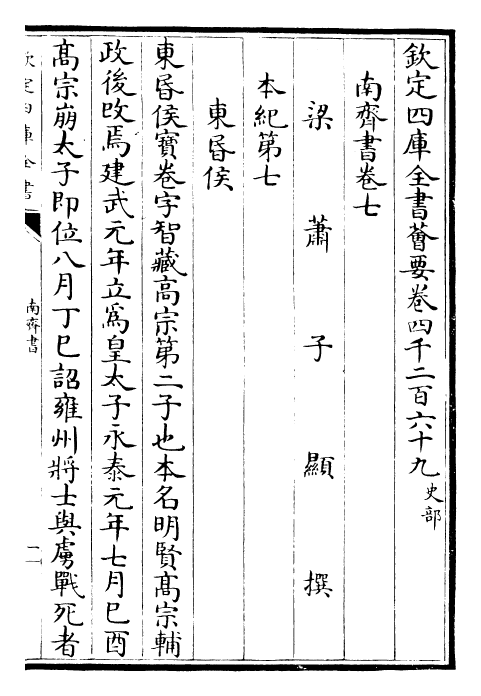 欽定四庫全書薈要卷四千二百六十九 史部
南齊書卷七
梁蕭子顯撰
本紀第七
東昏侯
東昏侯寶卷字智藏高宗第二子也本名明賢高宗輔
政後改焉建武元年立為皇太子永泰元年七月已酉
高宗崩太子即位八月丁巳詔雍州將士與虜戰死者
欽定四庫全書
南齊書
二